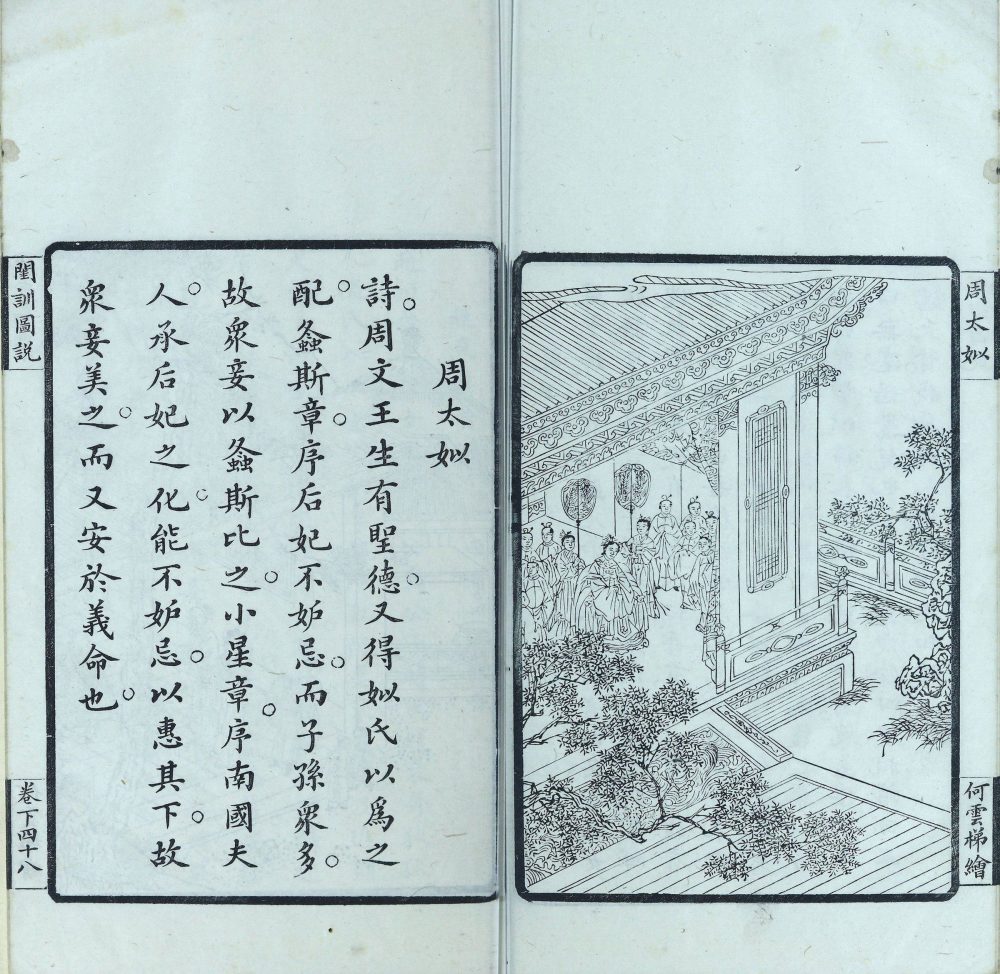 周太姒
何雲梯繪
周太姒
詩周文王生有聖德。又得姒氏以爲之
配。螽斯章。序后妃不妒忌。而子孫衆多。
故衆妾以螽斯比之。小星章。序南國夫
人。承后妃之化。能不妒忌。以惠其下。故
衆妾美之。而又安於義命也。
閨訓圖説
卷下四十八